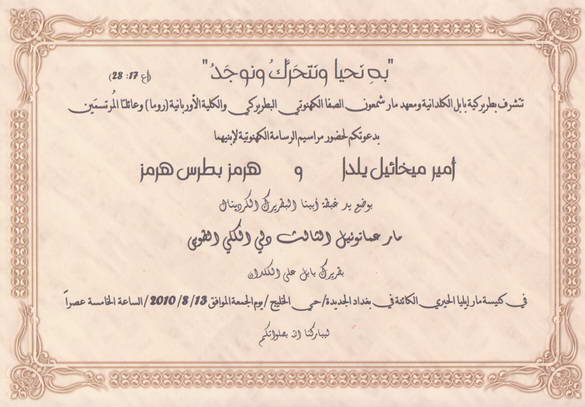 "بهِ نحيا ونتحَرَّكُ ونوجَدُ" (اع 17: 28)
تتشرف بطريركية بابل الكلدانية ومعهد مار شمعون الصفا الكهنوتي البطريركي والكلية الأوربانية (روما) وعائلتا المُرتسمَين
بدعوتكم لحضور مراسيم الرسامة الكهنوتية لإبنيهما
أمير ميخائيل يلدا و هرمز بطرس هرمز
بوضع يد غبطة أبينا البطريرك الكردينال
مار عمانوئيل الثالث دلي الكلي الطوبى
بطريرك بابل على الكلدان
في كنيسة مار إيليا الحيري الكائنة في بغداد الجديدة / حي الخليج / يوم الجمعة الموافق 2010/8/13 / الساعة الخامسة عصراً
ليباركنا الله بصلواتكم